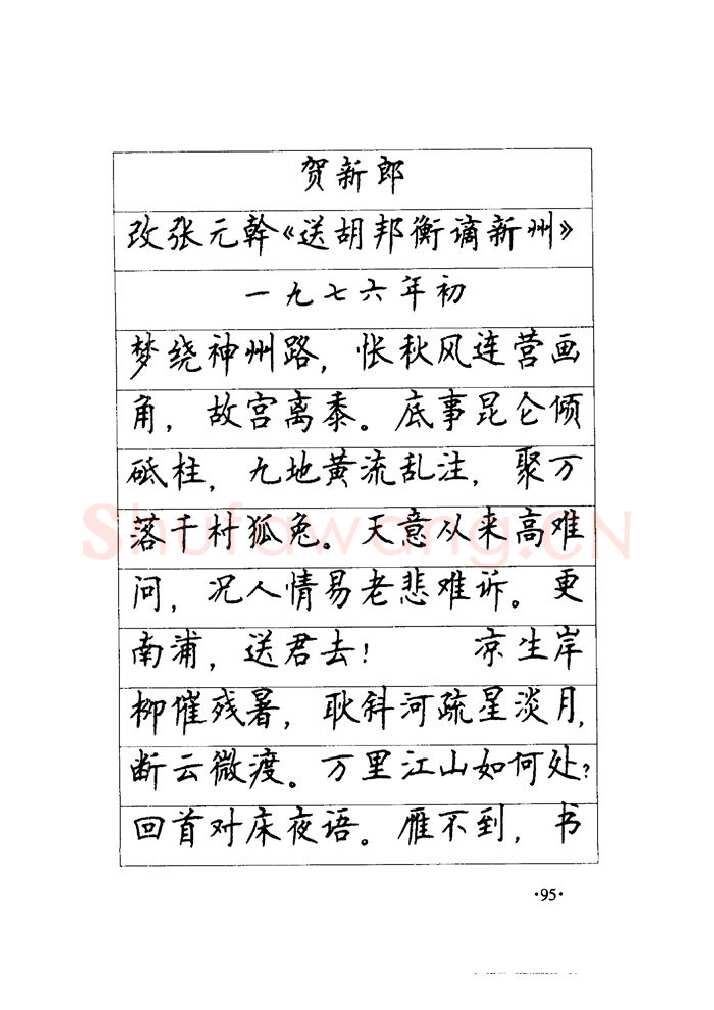 贺新郎
改张元幹《送胡邦衡谪新州》
一九七六年初
梦绕神州路，怅秋风连营画
角，故宫离黍。底事昆仑倾
砥柱，九地黄流乱注，聚万
落千村狐兔。天意从来高难
问，况人情易老悲难诉。更
南浦，送君去！　　凉生岸
柳催残暑，耿斜河疏星淡月，
断云微渡。万里江山如何处？
回首对床夜语。雁不到，书
·95·
Shufawang.CN